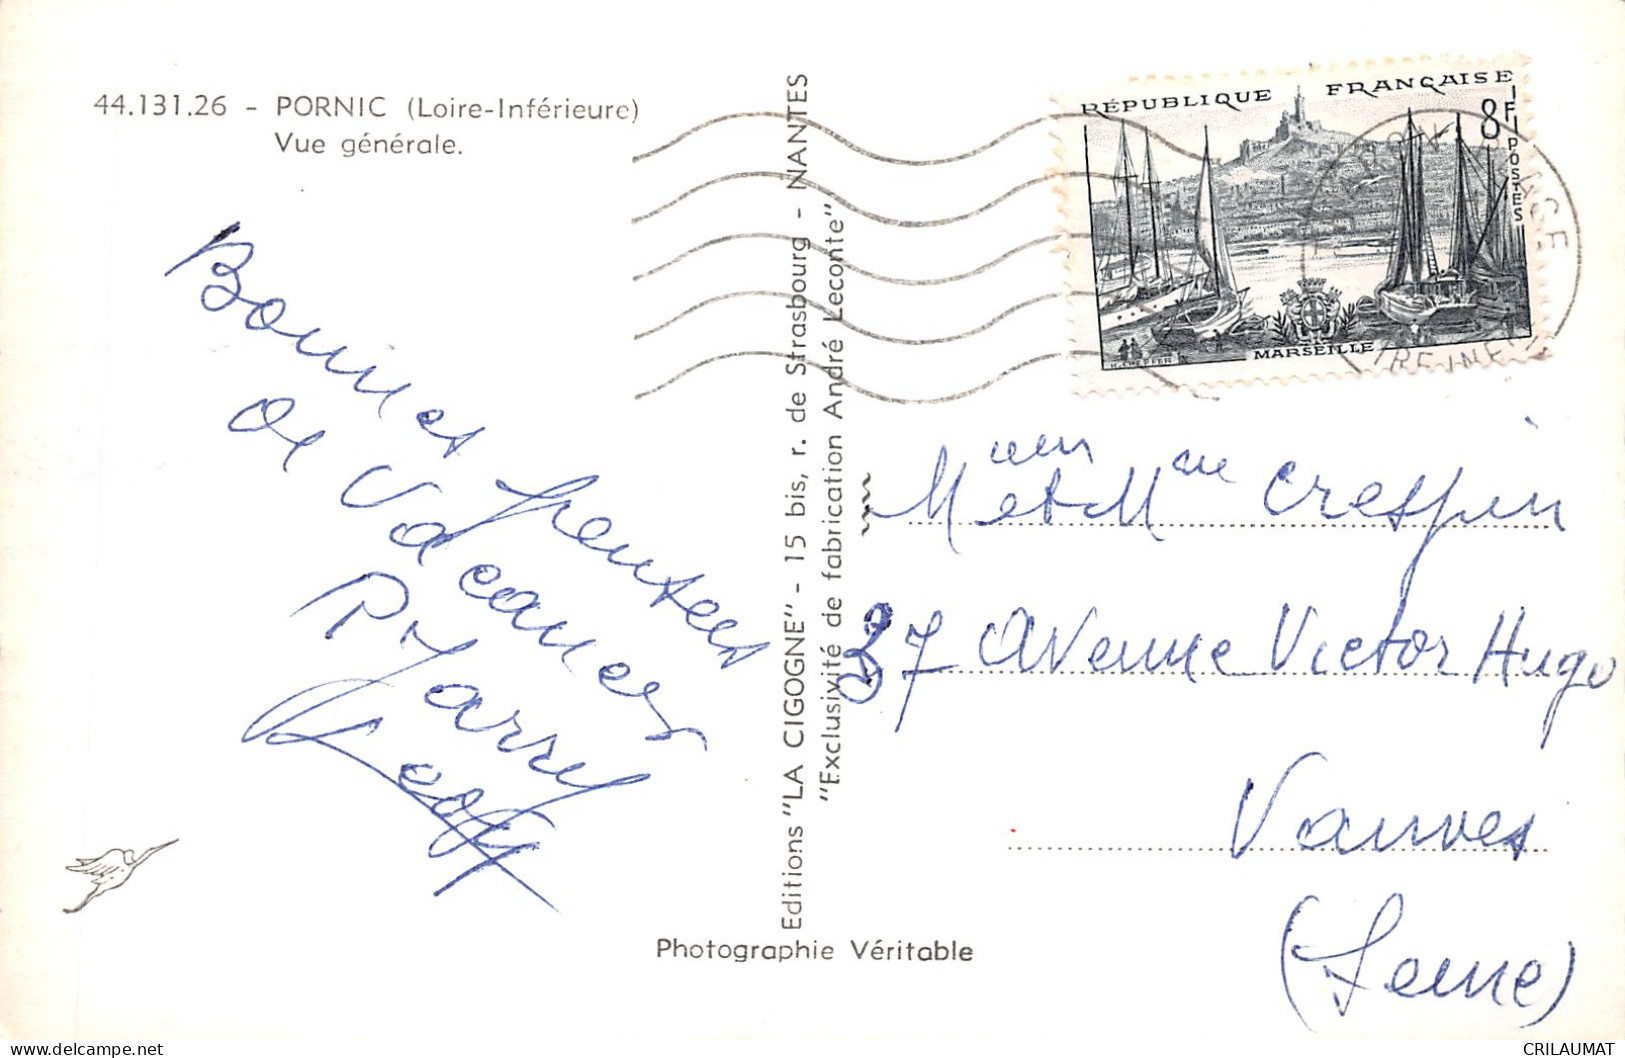 44.131.26 - PORNIC (Loire-Inférieure)
Vue générale.
Bonnes pensées
de Vacances
Editions "LA CIGOGNE" - 15 bis, r. de Strasbourg - NANTES
"Exclusivité de fabrication André Leconte"
RÉPUBLIQUE FRANÇAISE
8F
POSTES
MARSEILLE
Monsieur et Mme Crespin
37 Avenue Victor Hugo
Vanves
(Seine)
Photographie Véritable
CRILAUMAT